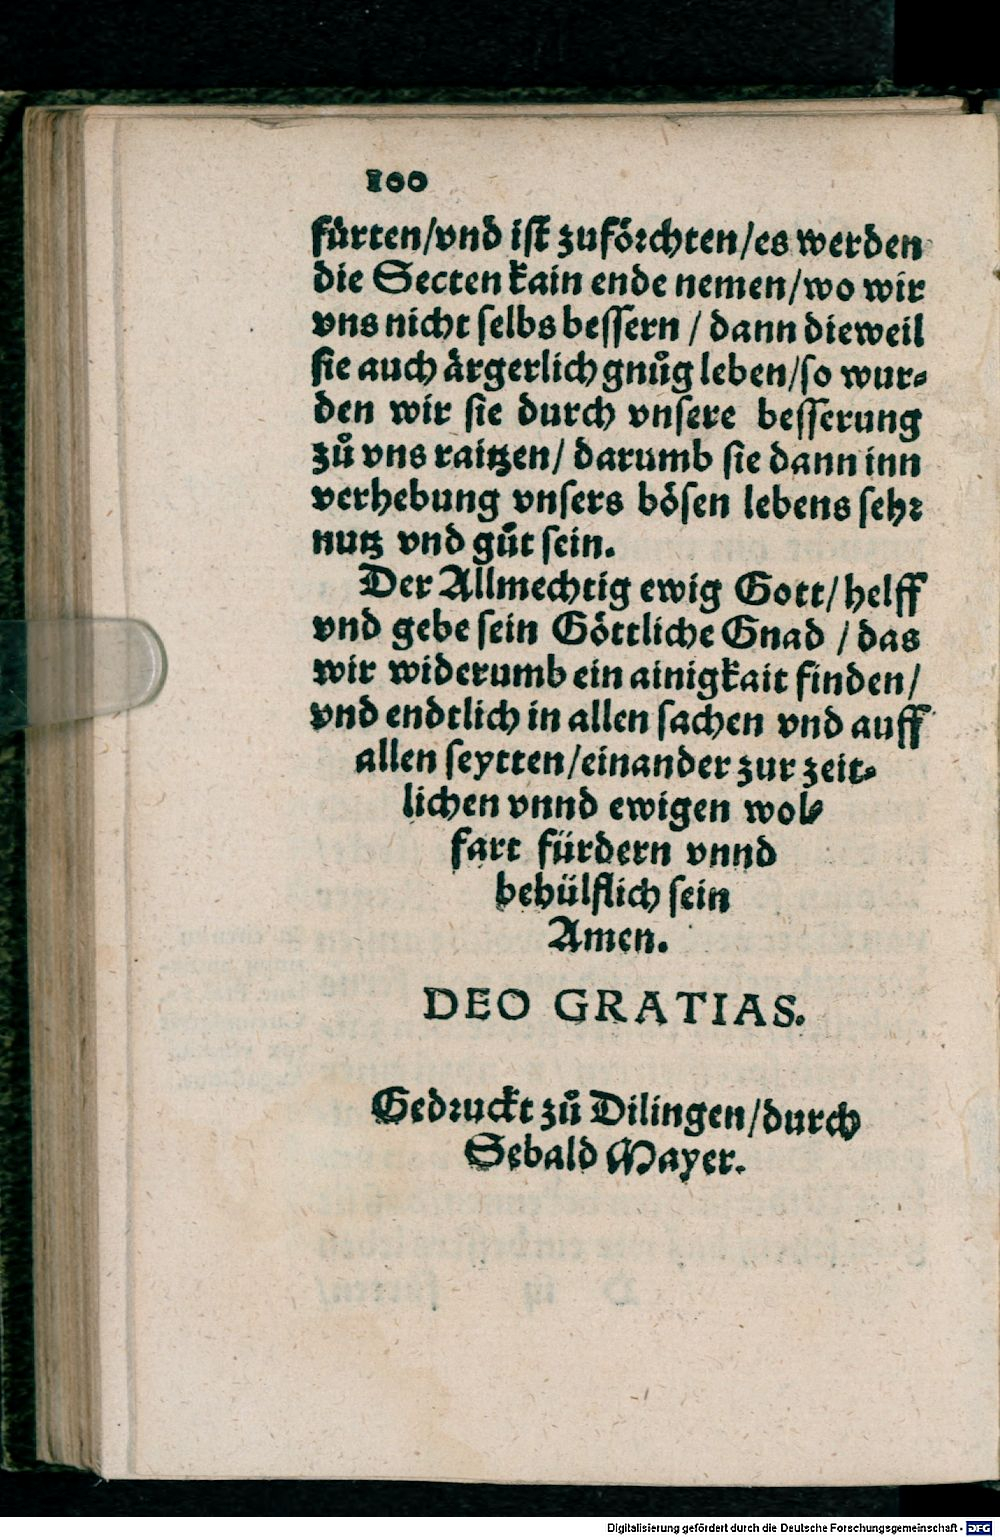 100
fuͤrten/vnd iſt zufoͤꝛchten/es werden
die Secten kain ende nemen/wo wir
vns nicht ſelbs beſſern / dann dieweil
ſie auch aͤrgerlich gnuͦg leben/ſo wur⸗
den wir ſie durch vnſere beſſerung
zuͦ vns raitzen/ darumb ſie dann inn
verhebung vnſers boͤſen lebens ſehꝛ
nutz vnd guͦt ſein.
Der Allmechtig ewig Gott/ helff
vnd gebe ſein Goͤttliche Gnad / das
wir widerumb ein ainigkait finden/
vnd endtlich in allen ſachen vnd auff
allen ſeytten/einander zur zeit⸗
lichen vnnd ewigen wol⸗
fart fürdern vnnd
behülflich ſein
Amen.
DEO GRATIAS.
Gedꝛuckt zuͦ Dilingen/durch
Sebald Mayer.
Digitalisierung gefördert durch die Deutsche Forschungsgemeinschaft - DFG